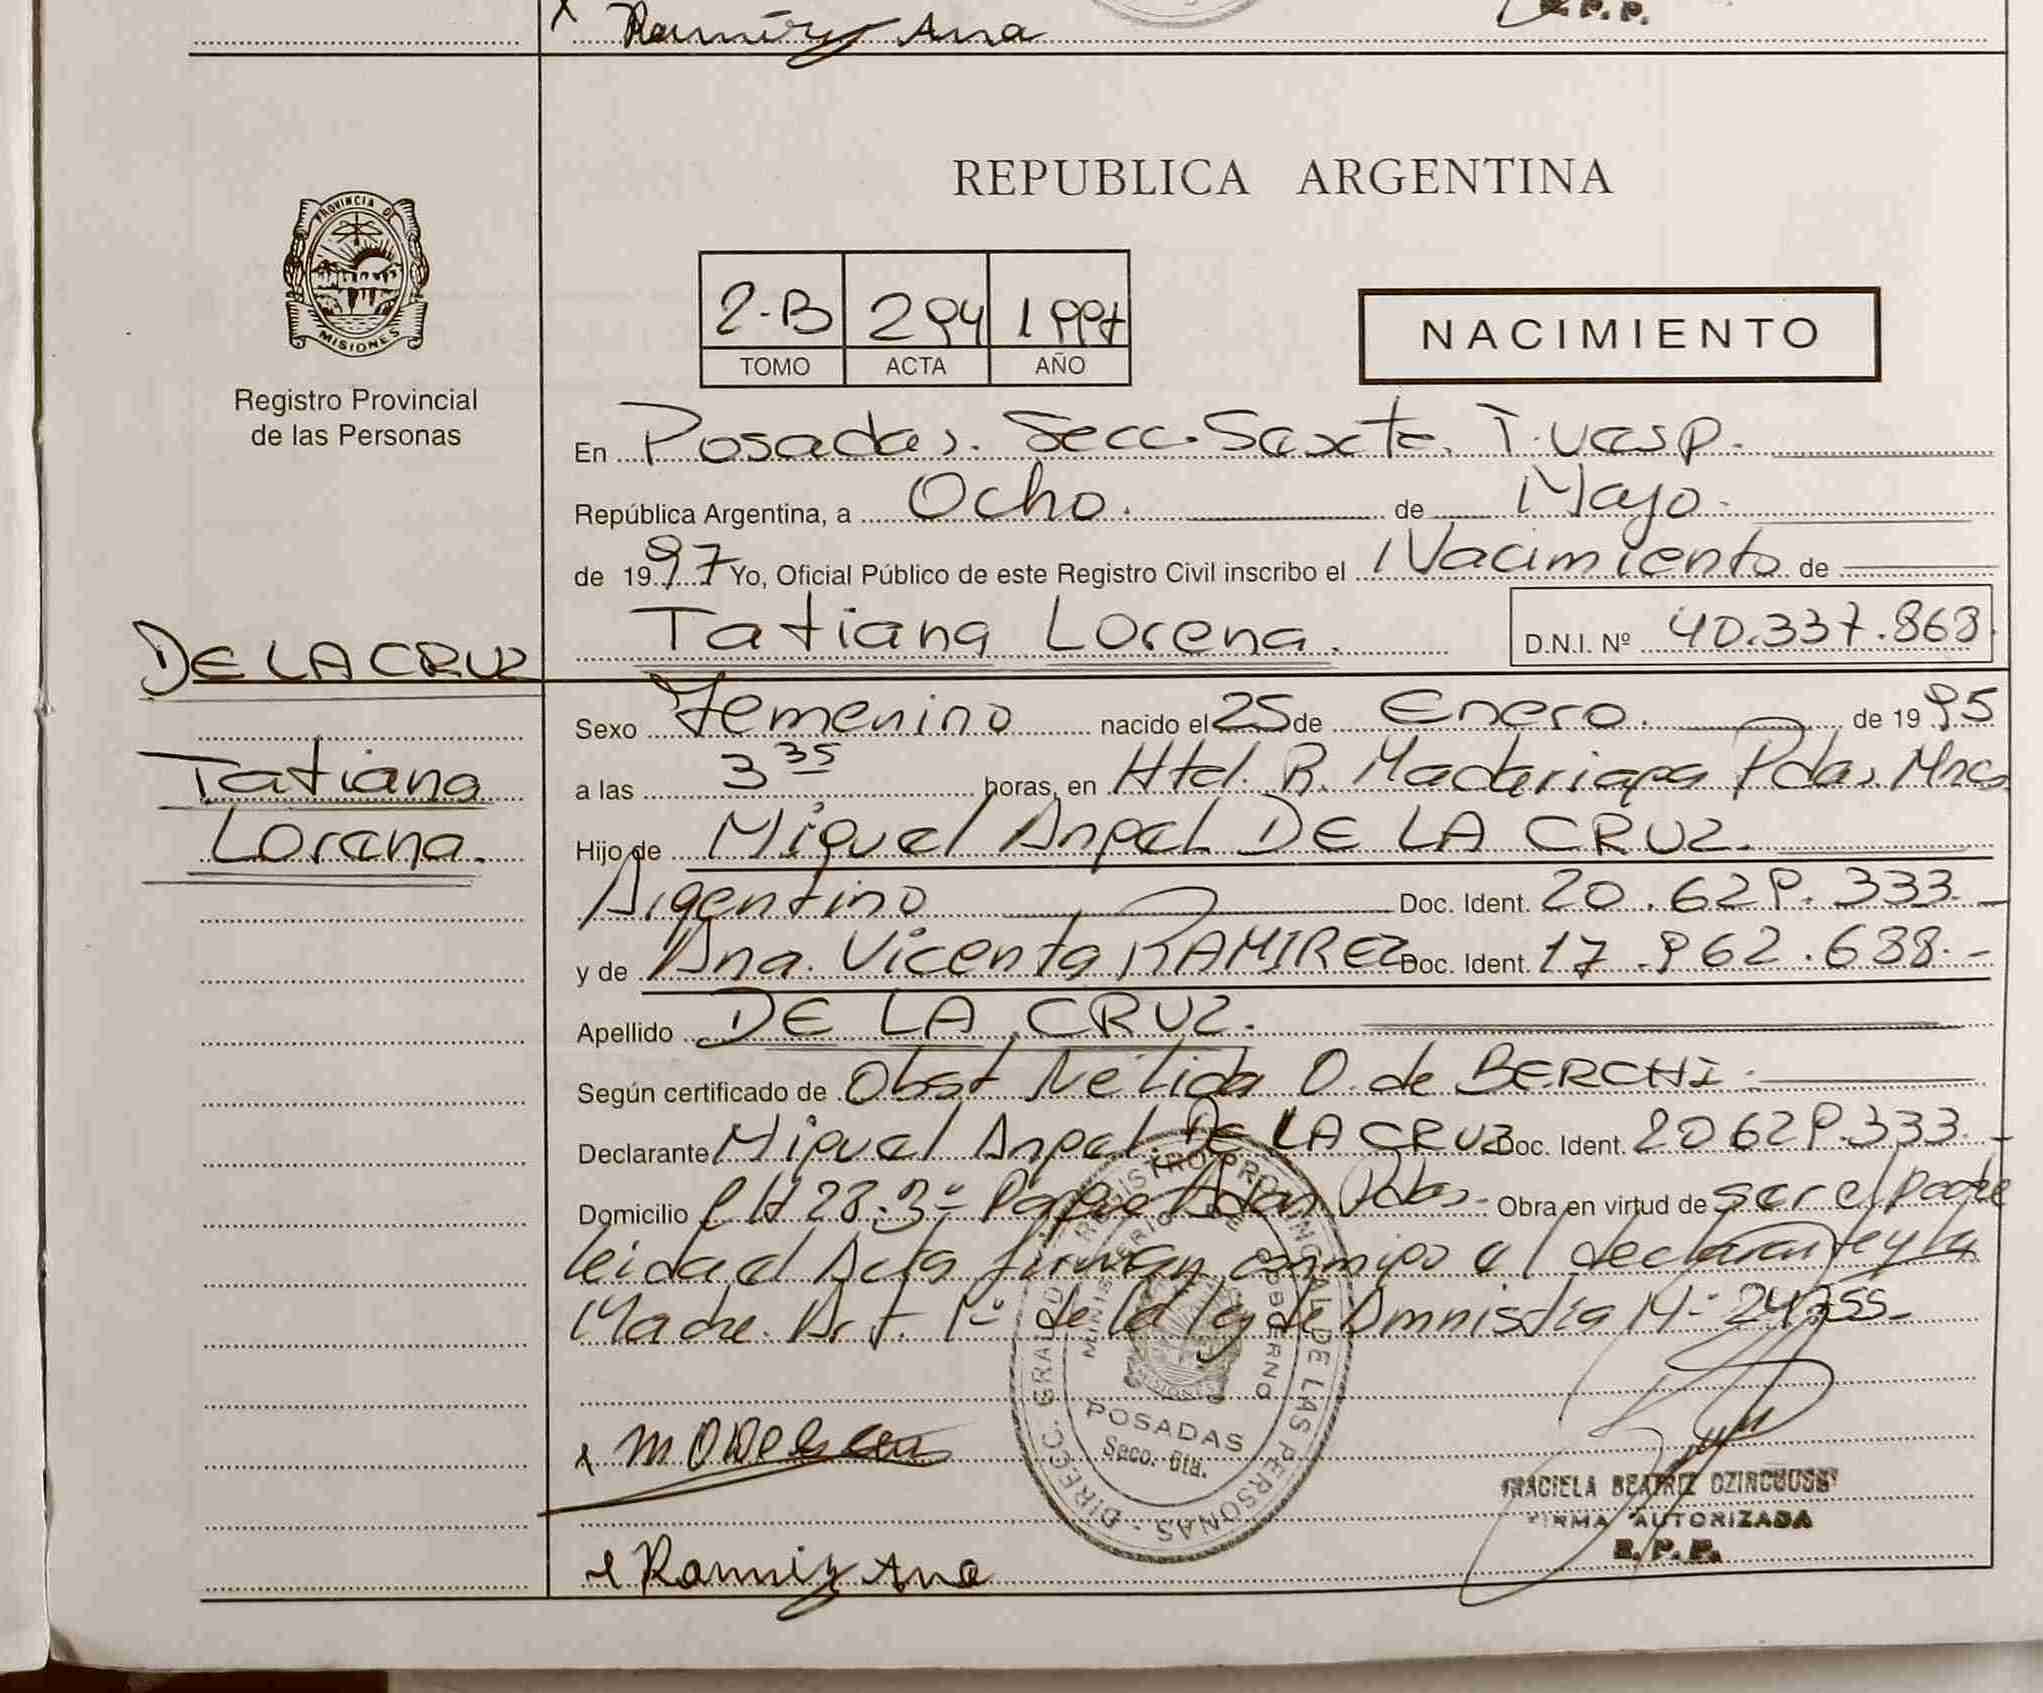 Ramírez Ana
R.P.P.
PROVINCIA DE
MISIONES
Registro Provincial
de las Personas
REPUBLICA ARGENTINA
2-B 294 1997
TOMO ACTA AÑO
NACIMIENTO
En Posadas. Secc. Sexta.
República Argentina, a Ocho. de Mayo.
de 1997 Yo, Oficial Público de este Registro Civil inscribo el Nacimiento de
Tatiana Lorena. D.N.I. Nº 40.337.868.
DE LA CRUZ
Tatiana
Lorena.
Sexo Femenino nacido el 25 de Enero. de 1995
a las 3 35 horas, en Htal. R. Madariaga Pdas. Mnes
Hijo de Miguel Angel DE LA CRUZ.
Argentino Doc. Ident. 20.629.333.-
y de Ana Vicenta RAMIREZ Doc. Ident. 17.962.638.-
Apellido DE LA CRUZ.
Según certificado de Obst Nelida O. de BERCHI.
Declarante Miguel Angel DE LA CRUZ Doc. Ident. 20629.333.-
Domicilio CH 28.3º Parque Adam Pdas.- Obra en virtud de ser el padre
leida el Acta firman conmigo el declarante y la
Madre. Art. 1º de la ley de Amnistia Nº 24755.-
DIRECC. GRAL. DEL REGISTRO PROVINCIAL DE LAS PERSONAS
MINISTERIO DE GOBIERNO
MISIONES
POSADAS
Secc. 6ta.
GRACIELA BEATRIZ
FIRMA AUTORIZADA
R.P.P.
Ramirez Ana